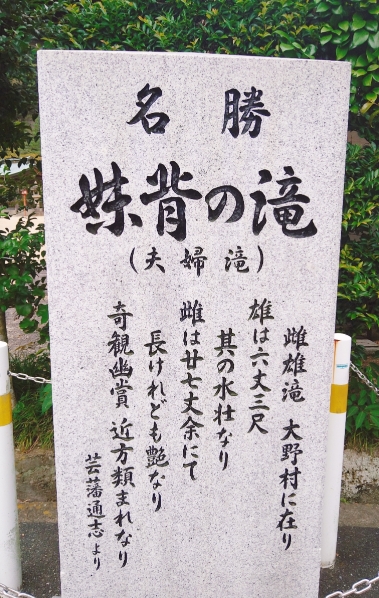 名勝
妹背の滝
(夫婦滝)
雌雄滝 大野村に在り
雄は六丈三尺
其の水壮なり
雌は廿七丈余にて
長けれども艶なり
奇観幽賞 近方類まれなり
芸藩通志より